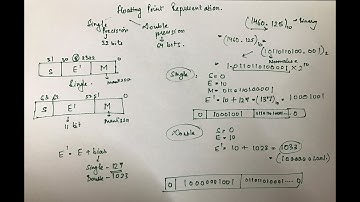 Floating Point Representation.
Single precision 32 bits
Double precision 64 bits.
(1460.125)10 → binary
(1460.125)10
= (10110110100.001)2
Normalize
1.0110110100001 × 2^10
31 30 23 22 0
S E' M
Single.
63 62 52 51 0
S E' M
11 bit
E' = E + bias
Single – 127
Double – 1023
Single:
S = 0
E = 10
M = 0110110100001
E' = 10 + 127 = (137)10 = 10001001
0 10001001 0110110100...0
Double
S = 0
E = 10
E' = 10 + 1023 = 1033
= (10000001001)
0 10000001001 0110110100...0